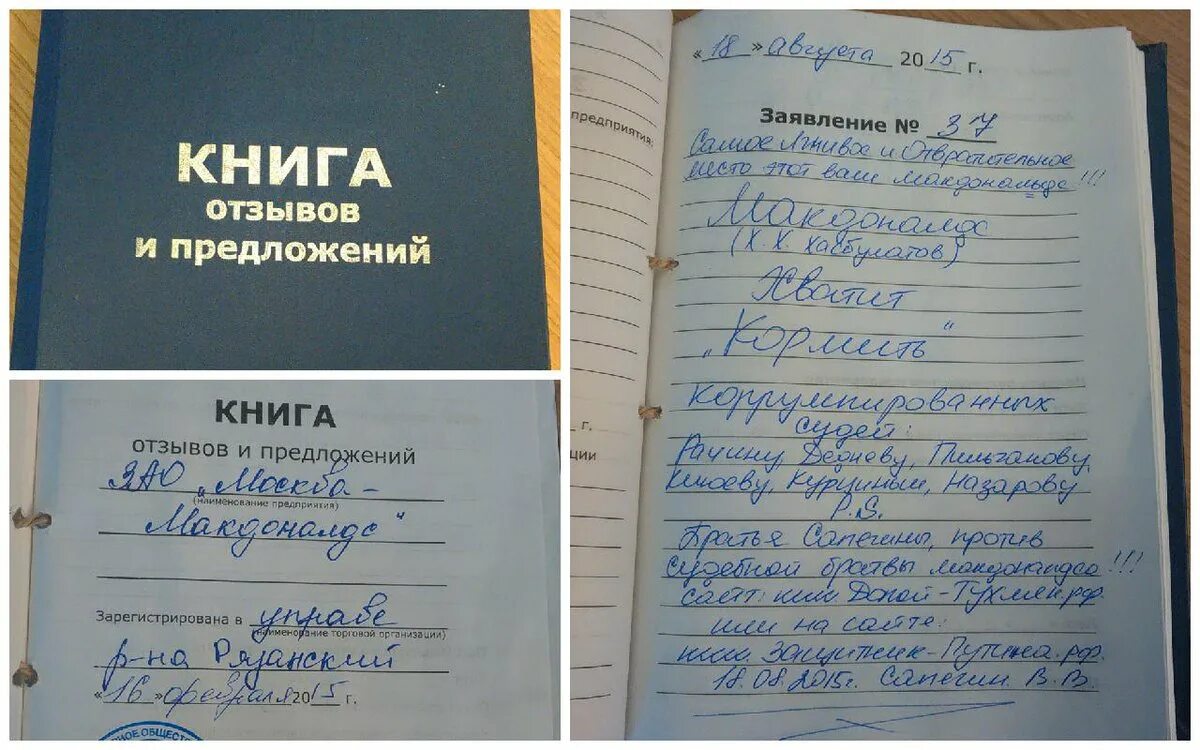 КНИГА
отзывов
и предложений
КНИГА
отзывов и предложений
ЗАО „Москва -
(наименование предприятия)
Макдоналдс“
Зарегистрирована в управе
(наименование торговой организации)
р-на Рязанский
«16» февраля 2015 г.
НОЕ ОБЩЕСТВ
предприятия:
г.
ции
«18» августа 2015 г.
Заявление № 37
Самое Лживое и Отвратительное
место этот ваш макдональдс!!!
Макдоналдс
(Х. Х. Хасбулатов)
Хватит
„Кормить“
коррумпированных
судей:
Рачину, Дедневу, Пильганову,
Клюеву, Курциньш, Назарову
P.S.
Братья Сапегины, против
судебной братвы макдоналдса!!!
сайт: или Долой-Тухмян.рф.
или на сайте:
или Защитник-Путина.рф.
18.08.2015г. Сапегин В.В.